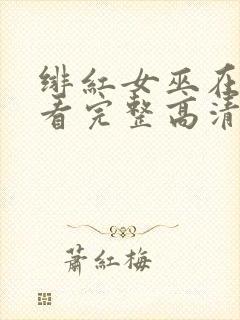 绯红女巫在
看完整高清
蕭紅梅